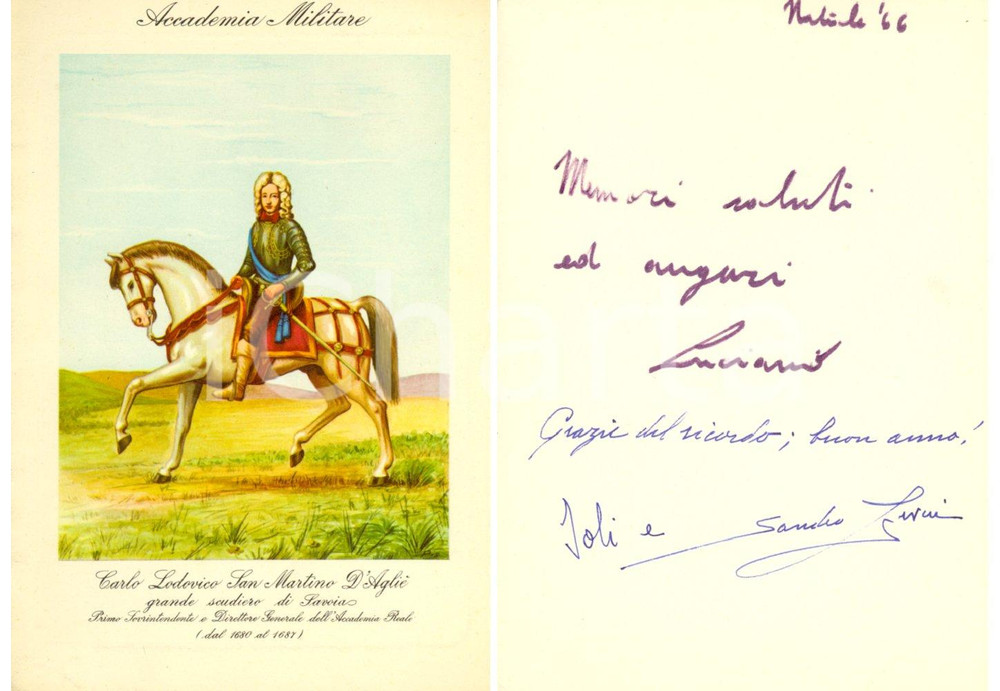 Accademia Militare
Carlo Lodovico San Martino D'Agliè
grande scudiero di Savoia
Primo Sovrintendente e Direttore Generale dell'Accademia Reale
(dal 1680 al 1687)
Natale '66
Memori saluti
ed auguri
Luciano
Grazie del ricordo; buon anno!
Joli e Sandro